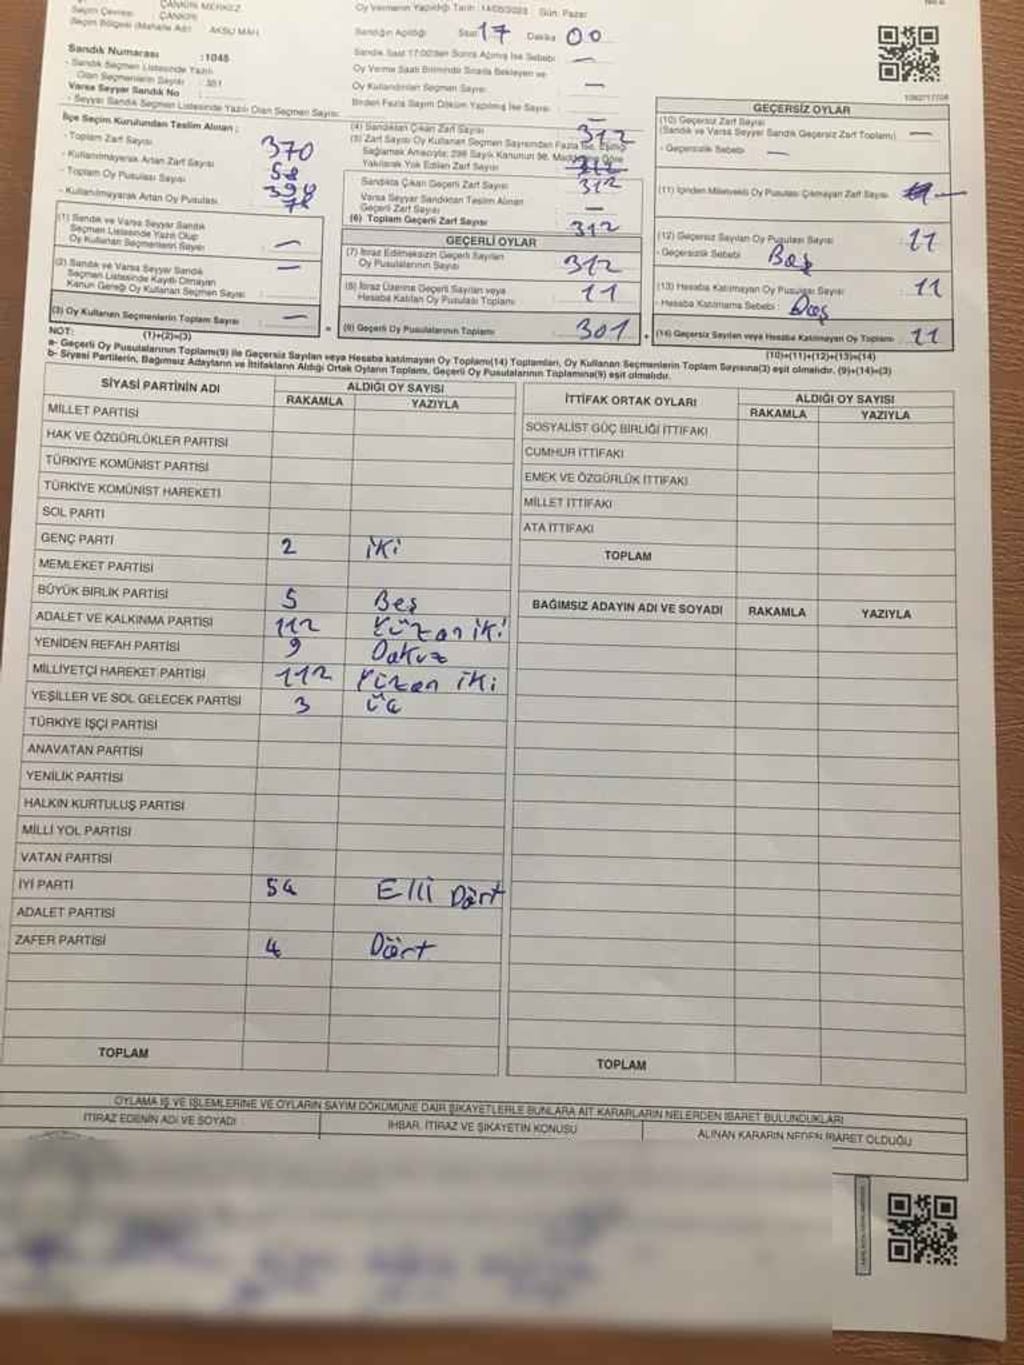 Seçim Çevresi : ÇANKIRI MERKEZ
ÇANKIRI
Seçim Bölgesi (Mahalle Adı) : AKSU MAH.
Sandık Numarası : 1048
- Sandık Seçmen Listesinde Yazılı
Olan Seçmenlerin Sayısı
Varsa Seyyar Sandık No
- Seyyar Sandık Seçmen Listesinde Yazılı Olan Seçmen Sayısı
Oy Vermenin Yapıldığı Tarih : 14/05/2023 Gün: Pazar
Sandığın Açıldığı Saat 17 Dakika 00
Sandık Saat 17:00'den Sonra Açılmış İse Sebebi: —
Oy Verme Saati Bitiminde Sırada Bekleyen ve
Oy Kullandırılan Seçmen Sayısı —
Birden Fazla Sayım Döküm Yapılmış İse Sayısı —
İlçe Seçim Kurulundan Teslim Alınan :
- Toplam Zarf Sayısı 370
- Kullanılmayarak Artan Zarf Sayısı 58
- Toplam Oy Pusulası Sayısı
- Kullanılmayarak Artan Oy Pusulası
(1) Sandık ve Varsa Seyyar Sandık
Seçmen Listesinde Yazılı Olup
Oy Kullanan Seçmenlerin Sayısı —
(2) Sandık ve Varsa Seyyar Sandık
Seçmen Listesinde Kayıtlı Olmayan
Kanun Gereği Oy Kullanan Seçmen Sayısı —
(3) Oy Kullanan Seçmenlerin Toplam Sayısı —
(1)+(2)=(3)
(4) Sandıktan Çıkan Zarf Sayısı 312
(5) Zarf Sayısı Oy Kullanan Seçmen Sayısından Fazla İse, Eşitliği
Sağlamak Amacıyla; 298 Sayılı Kanunun 98. Maddesine Göre
Yakılarak Yok Edilen Zarf Sayısı
Sandıkta Çıkan Geçerli Zarf Sayısı 312
Varsa Seyyar Sandıktan Teslim Alınan
Geçerli Zarf Sayısı —
(6) Toplam Geçerli Zarf Sayısı 312
GEÇERLİ OYLAR
(7) İtiraz Edilmeksizin Geçerli Sayılan
Oy Pusulalarının Sayısı 312
(8) İtiraz Üzerine Geçerli Sayılan veya
Hesaba Katılan Oy Pusulası Toplamı 11
(9) Geçerli Oy Pusulalarının Toplamı 301
GEÇERSİZ OYLAR
(10) Geçersiz Zarf Sayısı
(Sandık ve Varsa Seyyar Sandık Geçersiz Zarf Toplamı) —
- Geçersizlik Sebebi : —
(11) İçinden Milletvekili Oy Pusulası Çıkmayan Zarf Sayısı —
(12) Geçersiz Sayılan Oy Pusulası Sayısı 11
- Geçersizlik Sebebi : Boş
(13) Hesaba Katılmayan Oy Pusulası Sayısı 11
- Hesaba Katılmama Sebebi : Boş
(14) Geçersiz Sayılan veya Hesaba Katılmayan Oy Toplamı 11
(10)+(11)+(12)+(13)=(14)
NOT:
a- Geçerli Oy Pusulalarının Toplamı(9) ile Geçersiz Sayılan veya Hesaba katılmayan Oy Toplamı(14) Toplamları, Oy Kullanan Seçmenlerin Toplam Sayısına(3) eşit olmalıdır. (9)+(14)=(3)
b- Siyasi Partilerin, Bağımsız Adayların ve İttifakların Aldığı Ortak Oyların Toplamı, Geçerli Oy Pusulalarının Toplamına(9) eşit olmalıdır.
SİYASİ PARTİNİN ADI ALDIĞI OY SAYISI
RAKAMLA YAZIYLA
MİLLET PARTİSİ
HAK VE ÖZGÜRLÜKLER PARTİSİ
TÜRKİYE KOMÜNİST PARTİSİ
TÜRKİYE KOMÜNİST HAREKETİ
SOL PARTİ
GENÇ PARTİ 2 iki
MEMLEKET PARTİSİ
BÜYÜK BİRLİK PARTİSİ 5 Beş
ADALET VE KALKINMA PARTİSİ 112 Yüzoniki
YENİDEN REFAH PARTİSİ 9 Dokuz
MİLLİYETÇİ HAREKET PARTİSİ 112 Yüzon iki
YEŞİLLER VE SOL GELECEK PARTİSİ 3 üç
TÜRKİYE İŞÇİ PARTİSİ
ANAVATAN PARTİSİ
YENİLİK PARTİSİ
HALKIN KURTULUŞ PARTİSİ
MİLLİ YOL PARTİSİ
VATAN PARTİSİ
İYİ PARTİ 54 Elli Dört
ADALET PARTİSİ
ZAFER PARTİSİ 4 Dört
TOPLAM
İTTİFAK ORTAK OYLARI ALDIĞI OY SAYISI
RAKAMLA YAZIYLA
SOSYALİST GÜÇ BİRLİĞİ İTTİFAKI
CUMHUR İTTİFAKI
EMEK VE ÖZGÜRLÜK İTTİFAKI
MİLLET İTTİFAKI
ATA İTTİFAKI
TOPLAM
BAĞIMSIZ ADAYIN ADI VE SOYADI RAKAMLA YAZIYLA
TOPLAM
OYLAMA İŞ VE İŞLEMLERİNE VE OYLARIN SAYIM DÖKÜMÜNE DAİR ŞİKAYETLERLE BUNLARA AİT KARARLARIN NELERDEN İBARET BULUNDUKLARI
İTİRAZ EDENİN ADI VE SOYADI İHBAR, İTİRAZ VE ŞİKAYETİN KONUSU ALINAN KARARIN NEDEN İBARET OLDUĞU